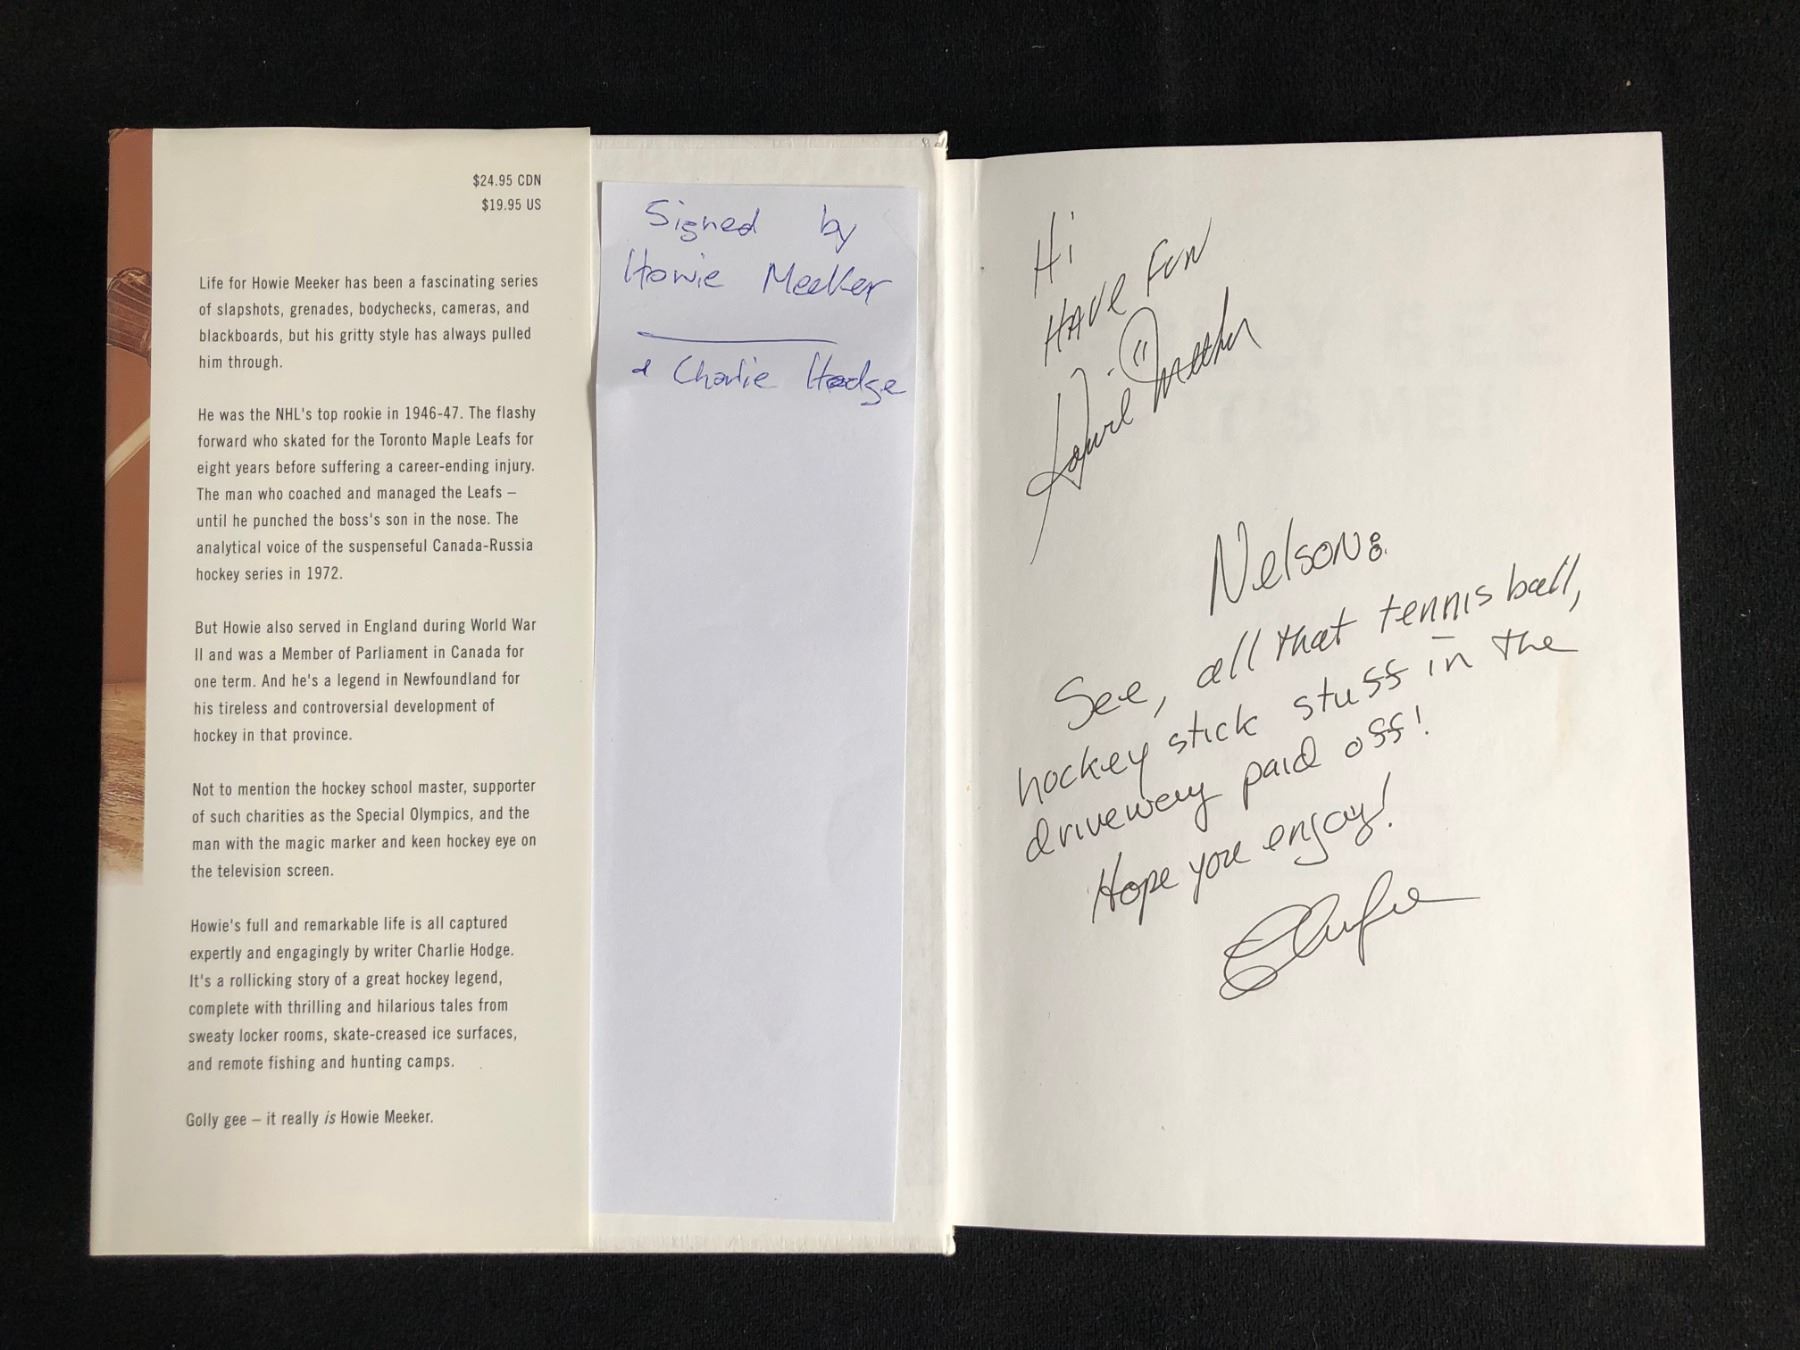 $24.95 CDN
$19.95 US
Life for Howie Meeker has been a fascinating series
of slapshots, grenades, bodychecks, cameras, and
blackboards, but his gritty style has always pulled
him through.
He was the NHL's top rookie in 1946-47. The flashy
forward who skated for the Toronto Maple Leafs for
eight years before suffering a career-ending injury.
The man who coached and managed the Leafs –
until he punched the boss's son in the nose. The
analytical voice of the suspenseful Canada-Russia
hockey series in 1972.
But Howie also served in England during World War
II and was a Member of Parliament in Canada for
one term. And he's a legend in Newfoundland for
his tireless and controversial development of
hockey in that province.
Not to mention the hockey school master, supporter
of such charities as the Special Olympics, and the
man with the magic marker and keen hockey eye on
the television screen.
Howie's full and remarkable life is all captured
expertly and engagingly by writer Charlie Hodge.
It's a rollicking story of a great hockey legend,
complete with thrilling and hilarious tales from
sweaty locker rooms, skate-creased ice surfaces,
and remote fishing and hunting camps.
Golly gee – it really is Howie Meeker.
Signed by
Howie Meeker
& Charlie Hodge
Hi
HAVE FUN
Howie Meeker
Nelson:
See, all that tennis ball,
hockey stick stuff in the
driveway paid off!
Hope you enjoy!